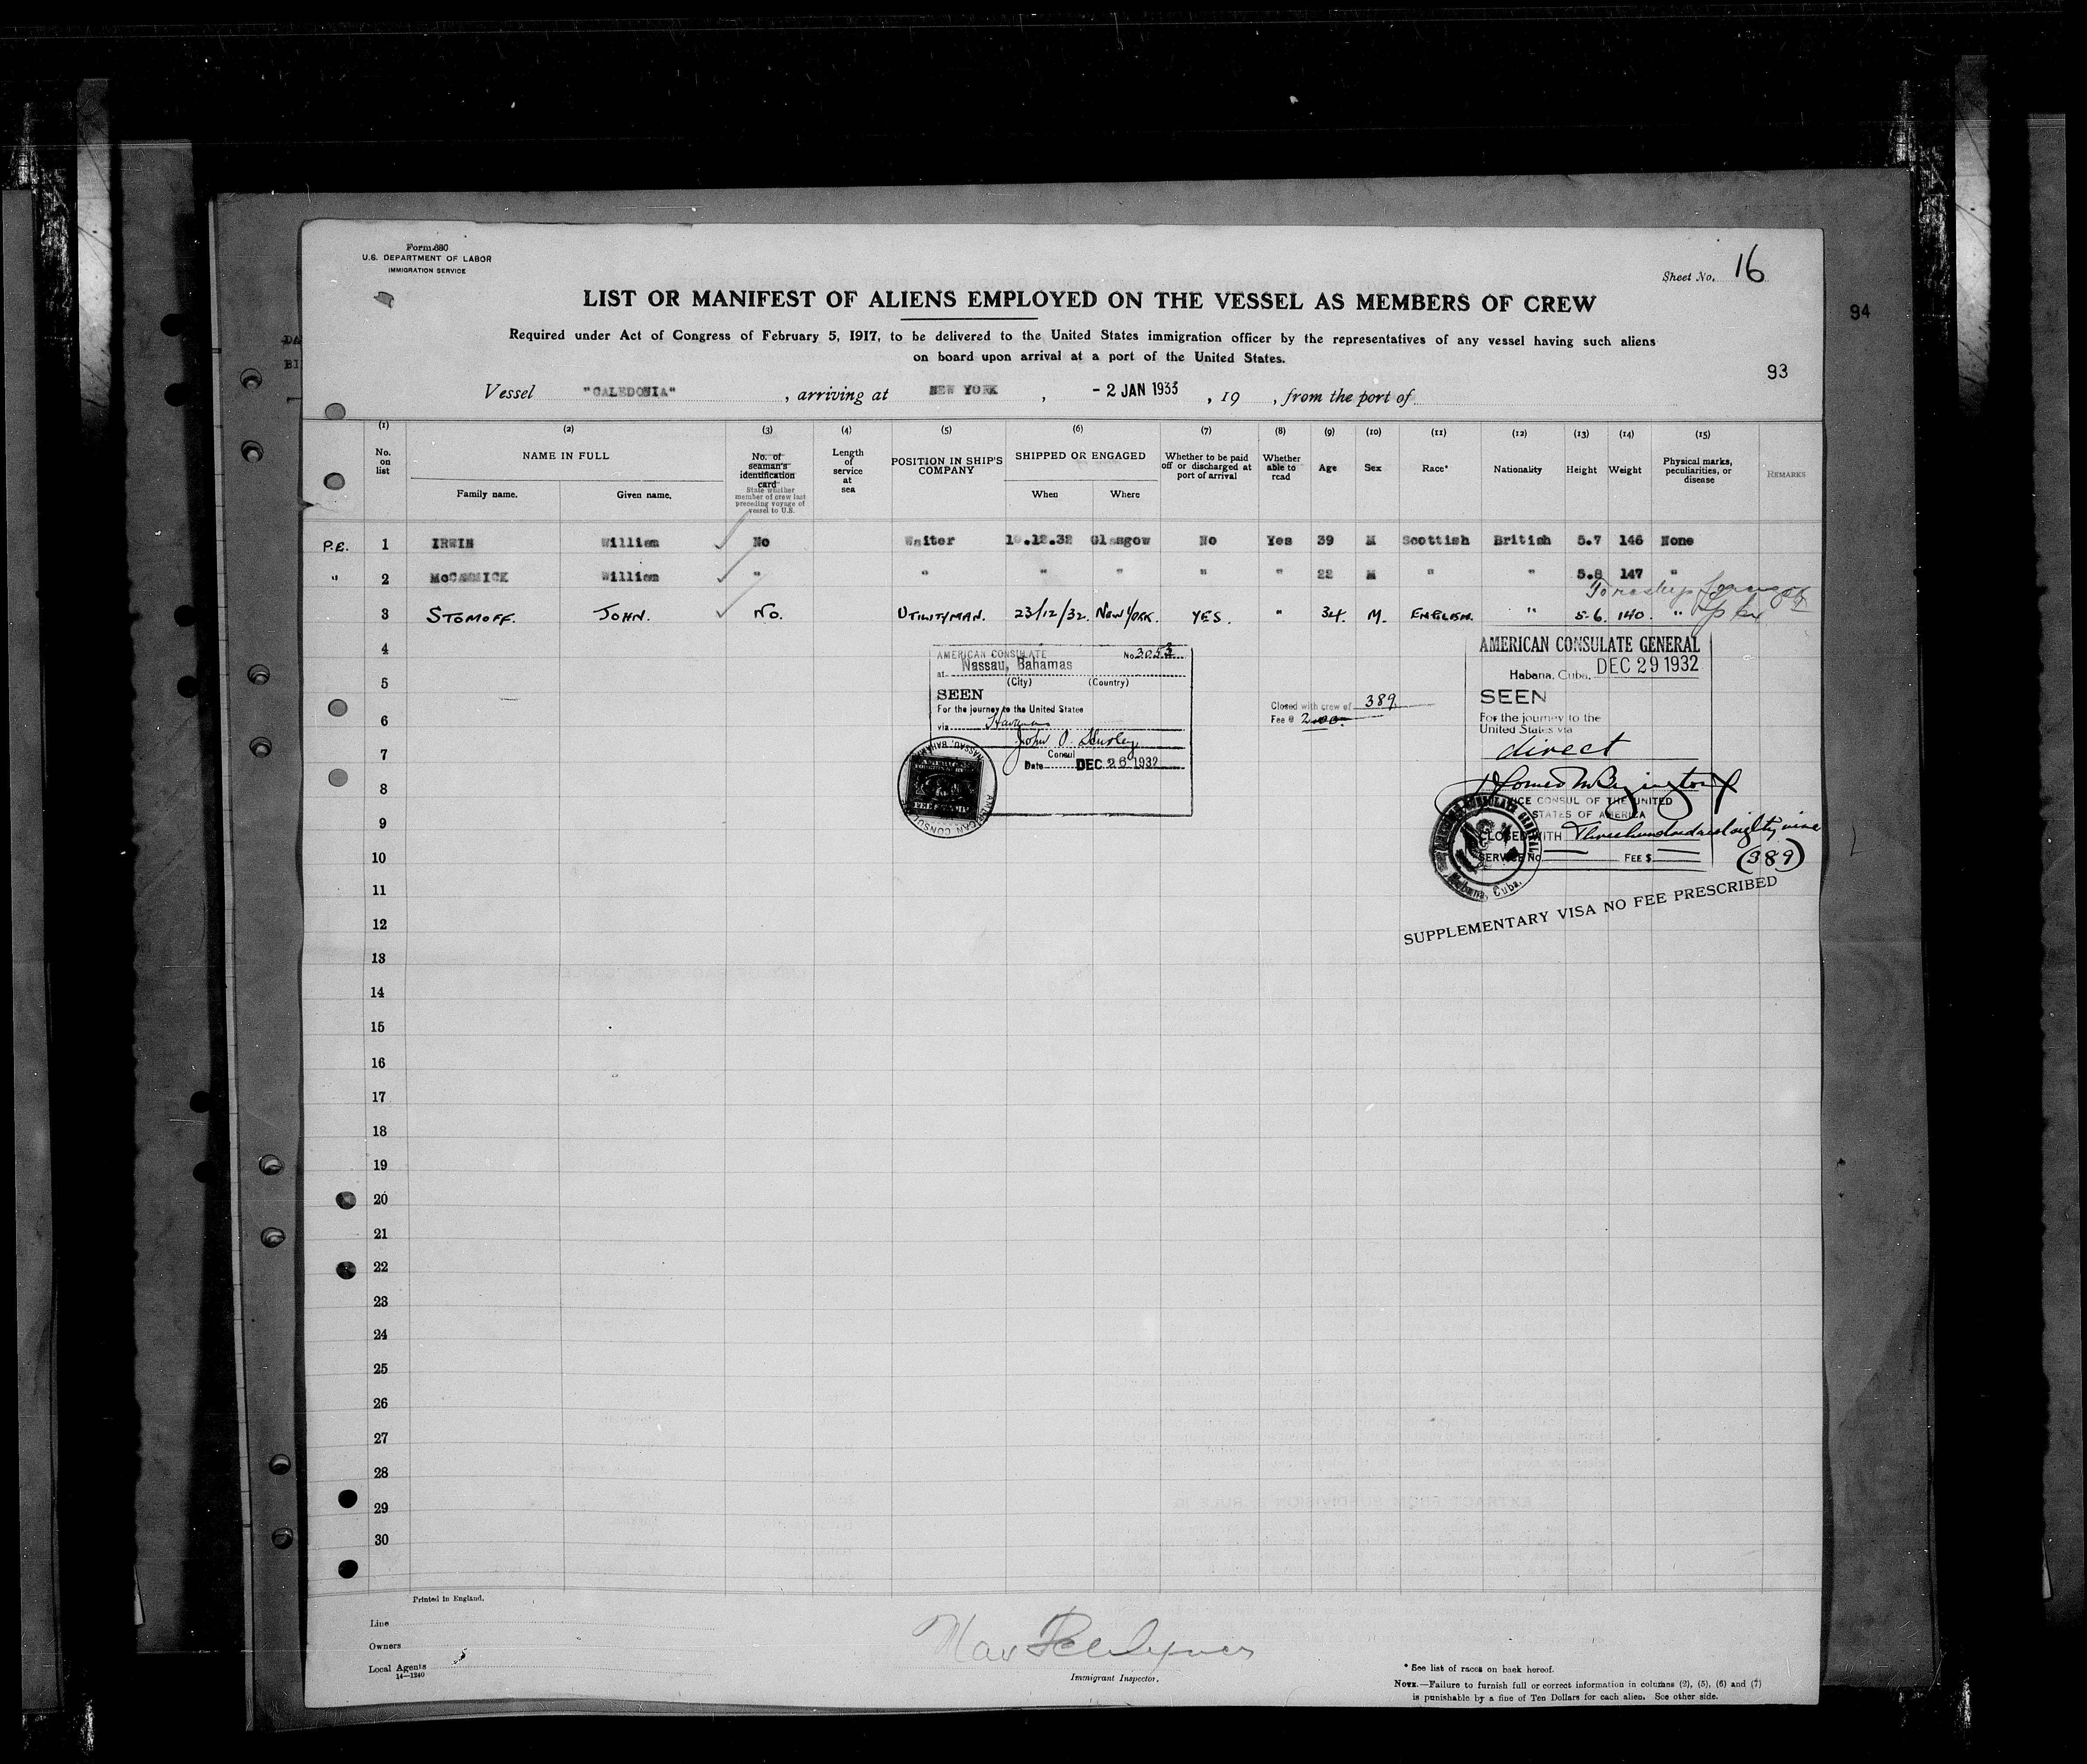 Form 680
U.S. DEPARTMENT OF LABOR
IMMIGRATION SERVICE
Sheet No. 16
LIST OR MANIFEST OF ALIENS EMPLOYED ON THE VESSEL AS MEMBERS OF CREW
94
Required under Act of Congress of February 5, 1917, to be delivered to the United States immigration officer by the representatives of any vessel having such aliens
on board upon arrival at a port of the United States.
93
Vessel "CALEDONIA", arriving at NEW YORK, - 2 JAN 1933, 19 , from the port of
(1) (2) (3) (4) (5) (6) (7) (8) (9) (10) (11) (12) (13) (14) (15)
No. on list
NAME IN FULL
Family name. Given name.
No. of seaman's identification card
State whether member of crew last preceding voyage of vessel to U.S.
Length of service at sea
POSITION IN SHIP'S COMPANY
SHIPPED OR ENGAGED
When Where
Whether to be paid off or discharged at port of arrival
Whether able to read
Age
Sex
Race*
Nationality
Height
Weight
Physical marks, peculiarities, or disease
REMARKS
P.E. 1 IRWIN William ✓ No Waiter 10.12.32 Glasgow No Yes 39 M Scottish British 5.7 146 None
" 2 McCORMICK William ✓ " " " " " " 22 M " " 5.8 147 "
3 STOMOFF. JOHN. ✓ NO. UTILITYMAN. 23/12/32. NEW YORK. YES. " 34. M. ENGLISH. " 5-6. 140. "
To reship foreign
4
5
6
7
8
9
10
11
12
13
14
15
16
17
18
19
20
21
22
23
24
25
26
27
28
29
30
AMERICAN CONSULATE No. 3053
at Nassau, Bahamas
(City) (Country)
SEEN
For the journey to the United States
via Havana
John O. Hurley
Consul
Date DEC 26 1932
NASSAU, BAHAMAS
AMERICAN CONSUL
AMERICAN
FEE STAMP
Closed with crew of 389
Fee $ 2.00.
AMERICAN CONSULATE GENERAL
Habana, Cuba, DEC 29 1932
SEEN
For the journey to the
United States via
direct
VICE CONSUL OF THE UNITED
STATES OF AMERICA
CLOSED WITH Three hundred and eighty nine
(389)
SERVICE No. FEE $
AMERICAN CONSULATE GENERAL
Habana, Cuba.
SUPPLEMENTARY VISA NO FEE PRESCRIBED
Printed in England.
Line
Owners
Local Agents
14—1240
Immigrant Inspector.
* See list of races on back hereof.
NOTE.—Failure to furnish full or correct information in columns (2), (5), (6) and (7)
is punishable by a fine of Ten Dollars for each alien. See other side.